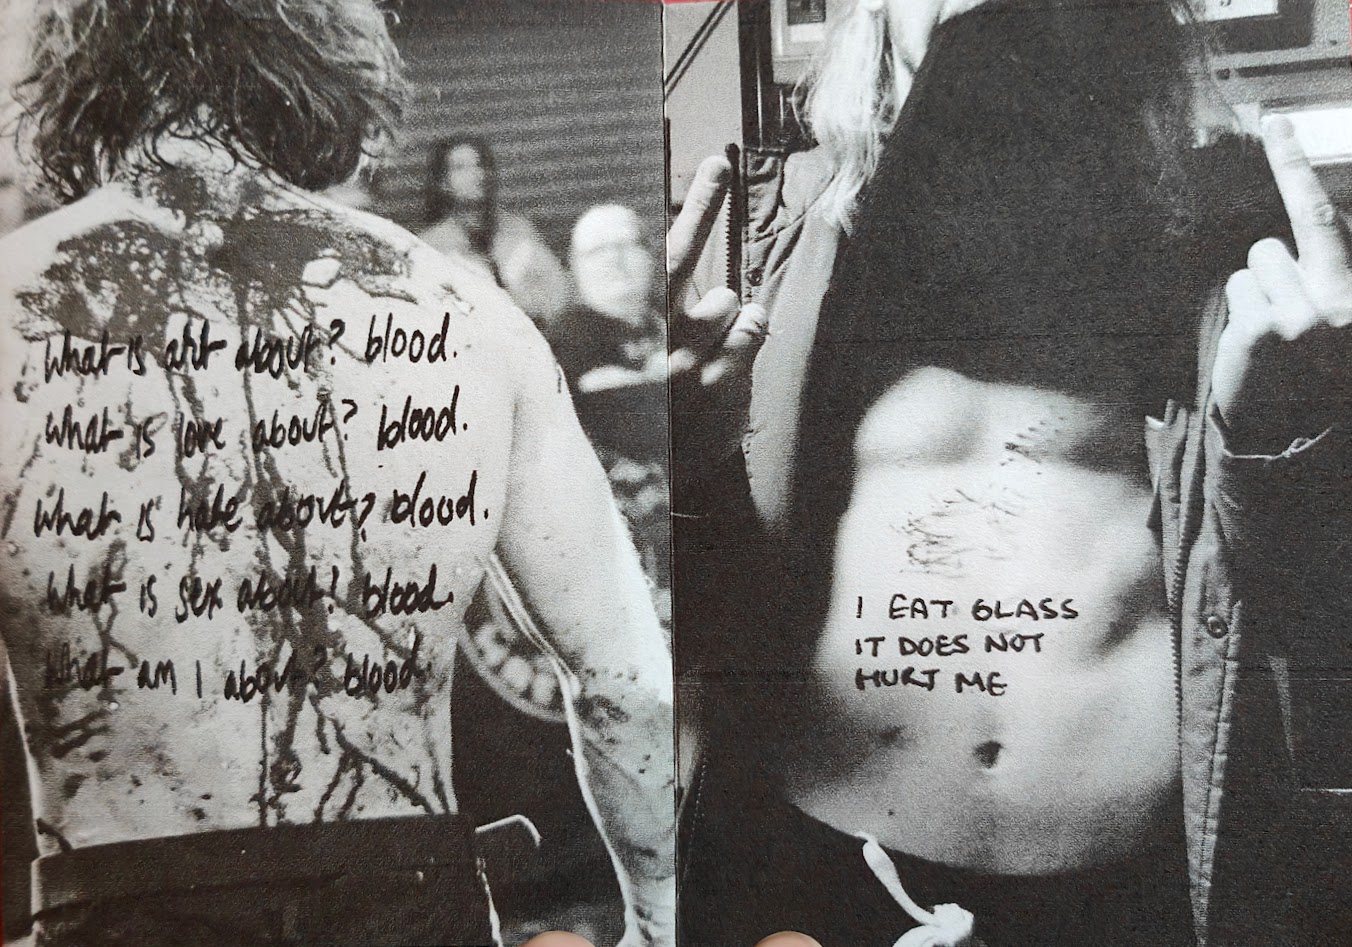 What is art about? blood.
What is love about? blood.
What is hate about? blood.
What is sex about? blood.
What am I about? blood.
I EAT GLASS
IT DOES NOT
HURT ME